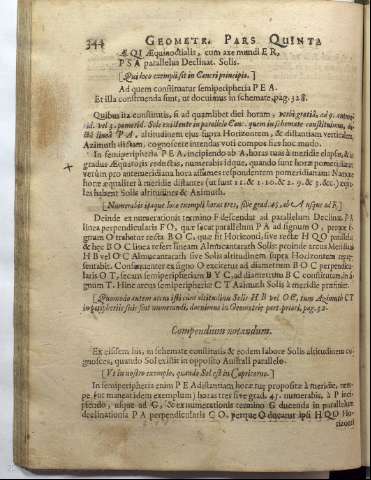 344 GEOMETR. PARS QUINTA
ÆQI Æquinoctialis, cum axe mundi ER,
PSA parallelus Declinat. Solis.
[Qui loco exempli sit in Cancri principio.]
Ad quem constituatur semiperipheria PEA.
Et illa construenda sunt, ut docuimus in schemate, pag. 328.
Quibus ita constitutis, si ad quamlibet diei horam, verbi gratiâ, ad 9. antemerid. vel 3. pomerid. Sole existente in parallelo
PA, altitudinem ejus supra Horizontem, & distantiam verticalem,
Azimuth dictam, cognoscere intendas voti compos fies hoc modo.
In semiperipheria PEA, incipiendo ab A, horas tuas à meridie elapsas, &
gradus Æquatoris redactas, numerabis
verùm pro antemeridiana hora assumes respondentem pomeridianam: Namque
horæ æqualiter à meridie distantes (ut sunt 11. & 1. 10. & 2. 9. & 3. &c.) æquales habent Solis altitudines & Azimuth.
[Numerabis itaque loco exempli horas tres, sive grad. 45. ab A usque ad F]
Deinde ex numerationis termino F descendat ad parallelum Declinat. PA
linea perpendicularis FO, quæ secat parallelum PA ad signum O, proque signum O trahatur recta BOC, quæ sit Horizonti, sive rectæ HQO
& hæc BOC linea refert lineam Almucantarath Solis: proinde arcus Meridiani
HB vel OC Almucantarath sive Solis altitudinem supra Horizontem repræsentabit. Consequenter ex signo O excitetur ad diametrum BOC perpendicularis OT, secans semiperipheriam BTC, ad diametrum BC constitutam, in signum T. Hinc arcus semiperipheriæ CT Azimuth Solis à meridie præfiniet.
[Quomodo autem arcus isti sunt altitudinis Solis HB vel OC, tum Azimuth CT
in peripheriis suis sint numerandi, docuimus in Geometriæ part. priori, pag. 52.
Compendium notandum.
Ex eisdem his, in schemate constitutis & eodem labore Solis altitudinem cognosces, quando Sol existit in opposito Australi parallelo.
[Ut in nostro exemplo, quando Sol est in Capricorno.]
In semiperipheria enim PEA distantiam horæ tuæ propositæ à meridie, nempe (ut maneat idem exemplum) horas tres sive grad. 45. numerabis, à P incipiendo, usque ad G, & ex numerationis termino G ducenda in parallelum
declinationis PA perpendicularis GO, perque O ducatur ipsi HQO Horizonti